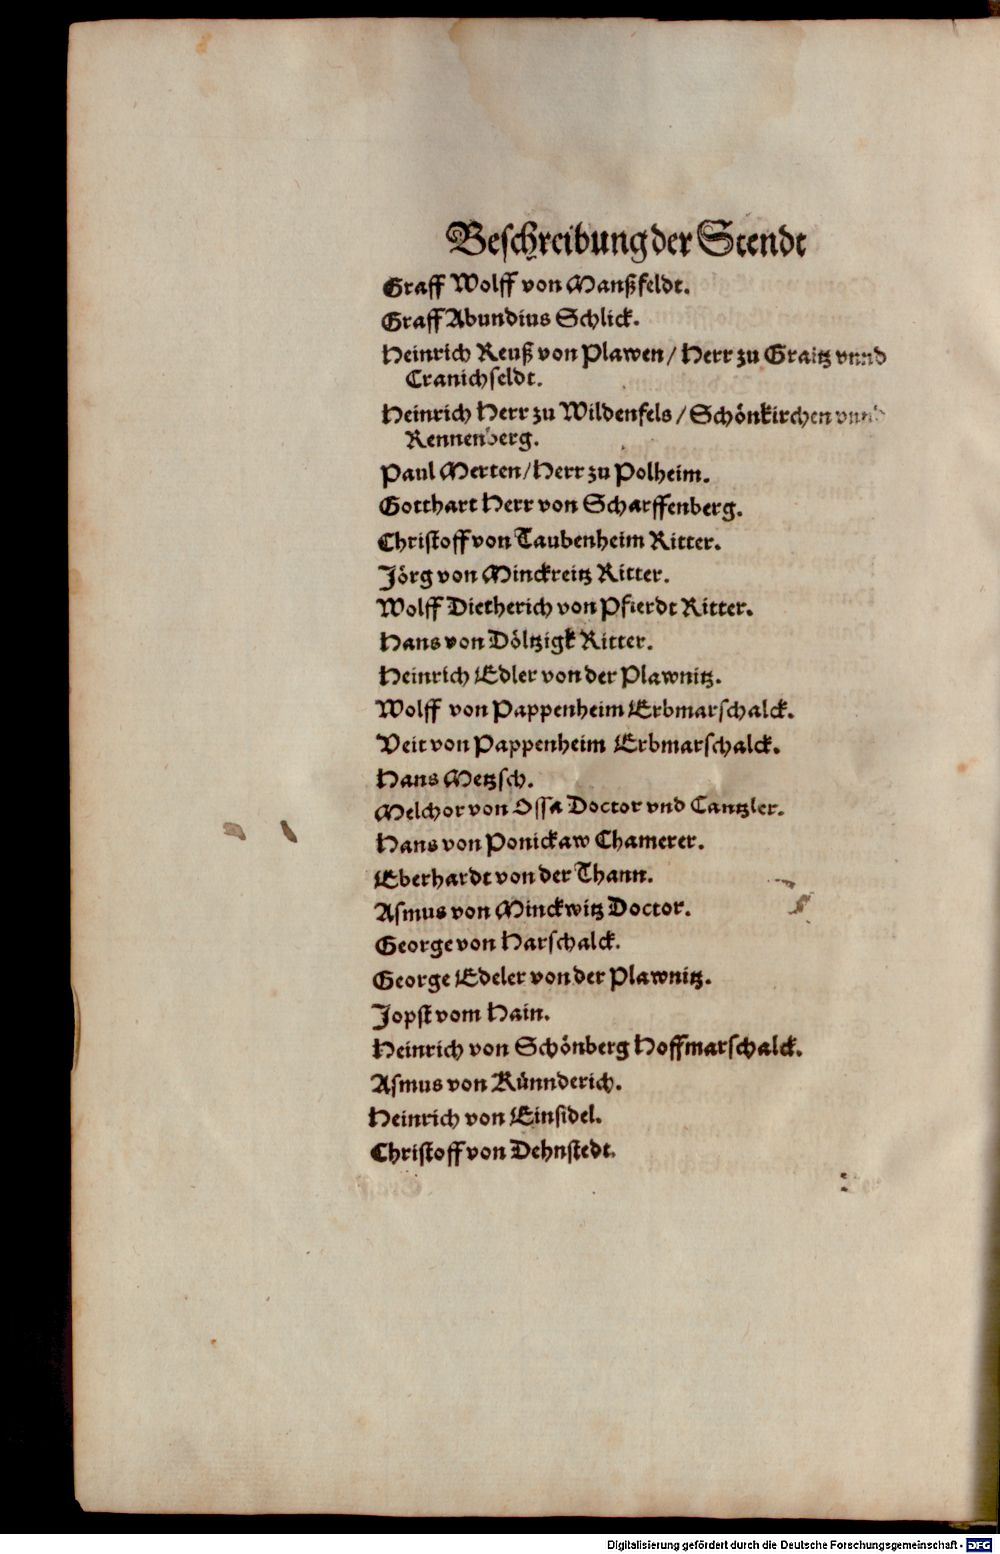 Beschreibung der Stendt
Graff Wolff von Manßfeldt.
Graff Abundius Schlick.
Heinrich Reuß von Plawen / Herr zu Graitz vnnd
Cranichfeldt.
Heinrich Herr zu Wildenfels / Schönkirchen vnnd
Rennenberg.
Paul Merten / Herr zu Polheim.
Gotthart Herr von Scharffenberg.
Christoff von Taubenheim Ritter.
Jörg von Minckreitz Ritter.
Wolff Dietherich von Pfierdt Ritter.
Hans von Döltzigk Ritter.
Heinrich Edler von der Plawnitz.
Wolff von Pappenheim Erbmarschalck.
Veit von Pappenheim Erbmarschalck.
Hans Metzsch.
Melchor von Ossa Doctor vnd Cantzler.
Hans von Ponickaw Chamerer.
Eberhardt von der Thann.
Asmus von Minckwitz Doctor.
George von Harschalck.
George Edeler von der Plawnitz.
Jopst vom Hain.
Heinrich von Schönberg Hoffmarschalck.
Asmus von Künnderich.
Heinrich von Einsidel.
Christoff von Dehnstedt.
Digitalisierung gefördert durch die Deutsche Forschungsgemeinschaft - DFG